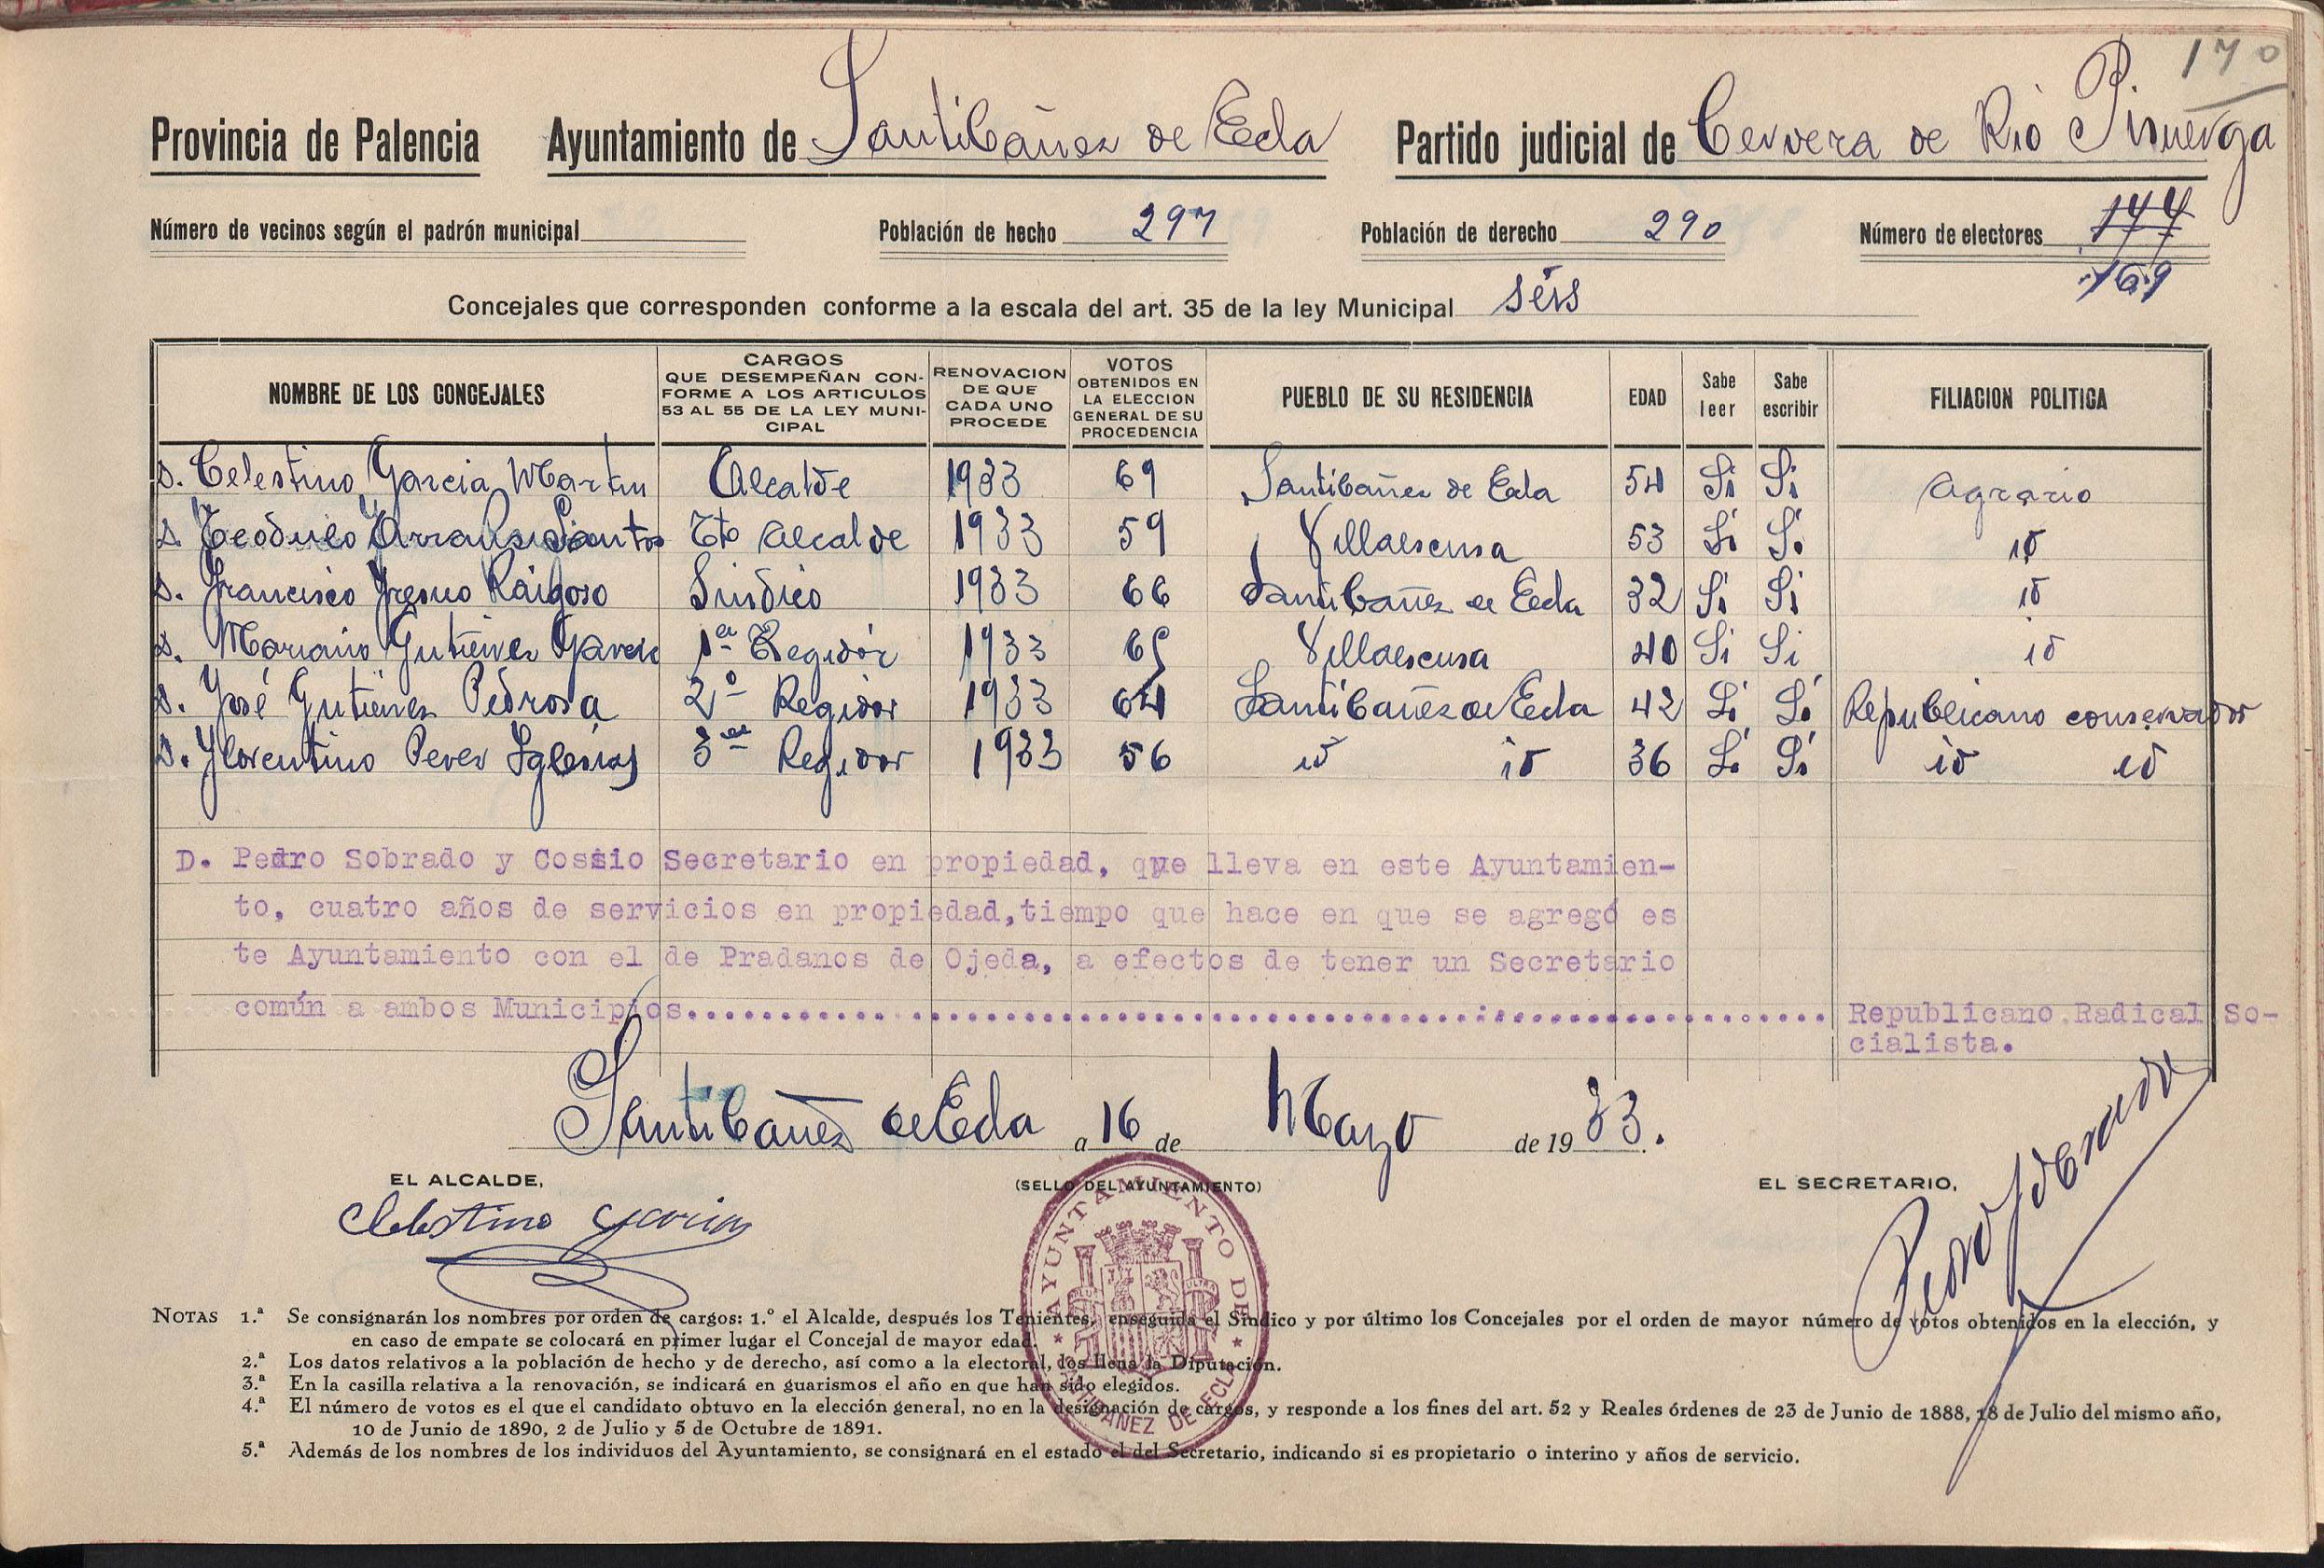 170
Provincia de Palencia Ayuntamiento de Santibañez de Ecla Partido judicial de Cervera de Rio Pisuerga
Número de vecinos según el padrón municipal Población de hecho 297 Población de derecho 290 Número de electores 144
169
Concejales que corresponden conforme a la escala del art. 35 de la ley Municipal seis
NOMBRE DE LOS CONCEJALES CARGOS QUE DESEMPEÑAN CONFORME A LOS ARTICULOS 53 AL 55 DE LA LEY MUNICIPAL RENOVACION DE QUE CADA UNO PROCEDE VOTOS OBTENIDOS EN LA ELECCION GENERAL DE SU PROCEDENCIA PUEBLO DE SU RESIDENCIA EDAD Sabe leer Sabe escribir FILIACION POLITICA
D. Celestino Garcia Martin Alcalde 1933 69 Santibañez de Ecla 54 Si Si Agrario
D. Teodulo Arranz Santos Tte Alcalde 1933 59 Villaescusa 53 Si Si id
D. Francisco Fresno Raigoso Sindico 1933 66 Santibañez de Ecla 32 Si Si id
D. Mariano Gutierrez Garcia 1er Regidor 1933 65 Villaescusa 40 Si Si id
D. José Gutierrez Pedrosa 2º Regidor 1933 64 Santibañez de Ecla 42 Si Si Republicano conservador
D. Florentino Perez Iglesias 3er Regidor 1933 56 id id 36 Si Si id id
D. Pedro Sobrado y Cossio Secretario en propiedad, que lleva en este Ayuntamien-
to, cuatro años de servicios en propiedad, tiempo que hace en que se agregó es
te Ayuntamiento con el de Pradanos de Ojeda, a efectos de tener un Secretario
común a ambos Municipios........................................................ Republicano Radical So-
cialista.
Santibañez de Ecla a 16 de Mayo de 1933.
EL ALCALDE, (SELLO DEL AYUNTAMIENTO) EL SECRETARIO,
Celestino Garcia
Pedro Sobrado
AYUNTAMIENTO DE
SANTIBAÑEZ DE ECLA
NOTAS 1.ª Se consignarán los nombres por orden de cargos: 1.º el Alcalde, después los Tenientes, enseguida el Síndico y por último los Concejales por el orden de mayor número de votos obtenidos en la elección, y
en caso de empate se colocará en primer lugar el Concejal de mayor edad.
2.ª Los datos relativos a la población de hecho y de derecho, así como a la electoral, los llena la Diputación.
3.ª En la casilla relativa a la renovación, se indicará en guarismos el año en que han sido elegidos.
4.ª El número de votos es el que el candidato obtuvo en la elección general, no en la designación de cargos, y responde a los fines del art. 52 y Reales órdenes de 23 de Junio de 1888, 18 de Julio del mismo año,
10 de Junio de 1890, 2 de Julio y 5 de Octubre de 1891.
5.ª Además de los nombres de los individuos del Ayuntamiento, se consignará en el estado el del Secretario, indicando si es propietario o interino y años de servicio.